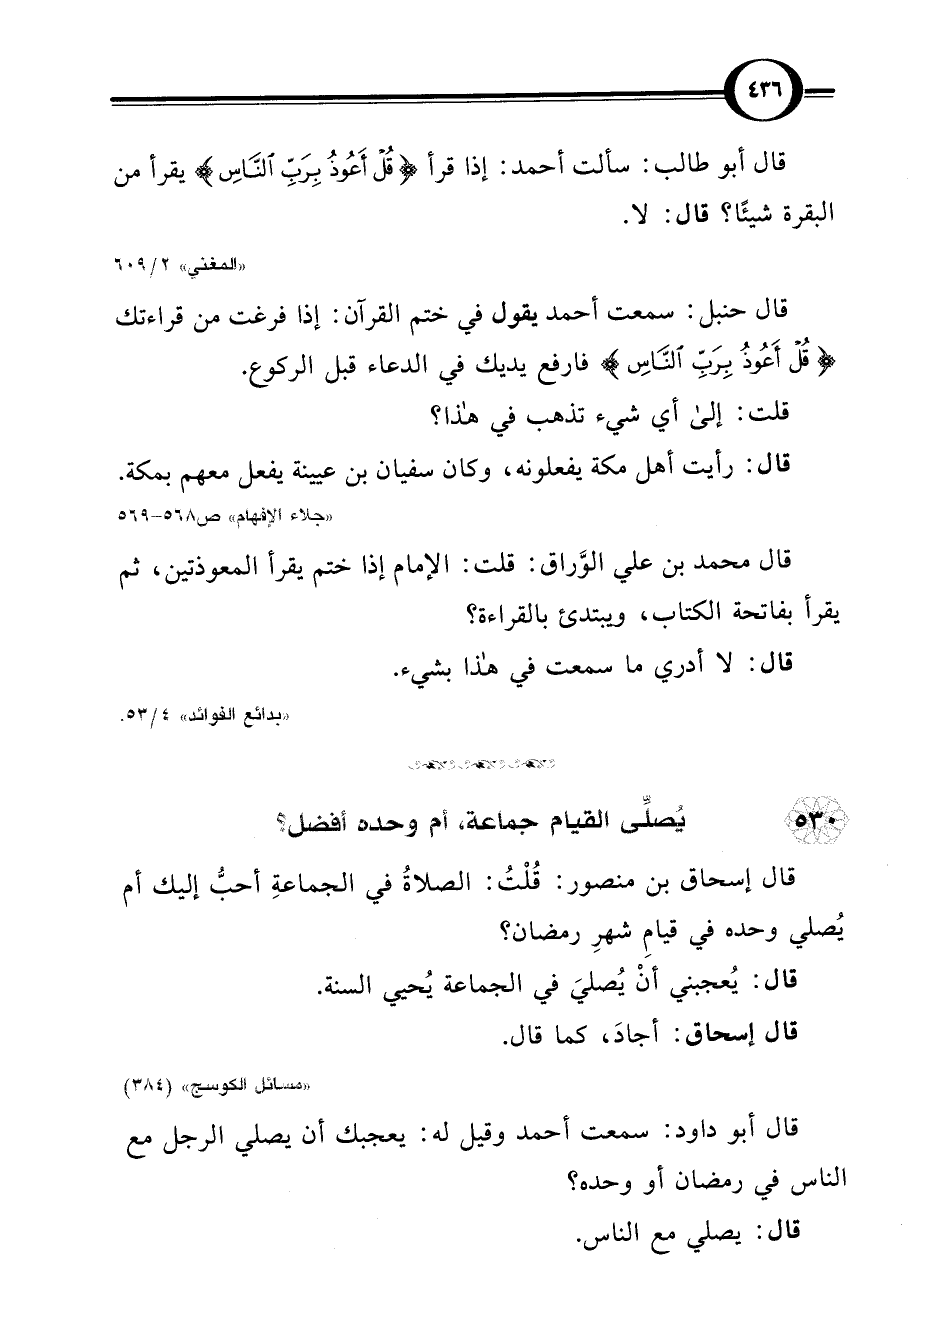 ٤٣٦
قال أبو طالب: سألت أحمد: إذا قرأ ﴿قُلْ أَعُوذُ بِرَبِّ ٱلنَّاسِ﴾ يقرأ من
البقرة شيئًا؟ قال: لا.
«المغني» ٢/ ٦٠٩
قال حنبل: سمعت أحمد يقول في ختم القرآن: إذا فرغت من قراءتك
﴿قُلْ أَعُوذُ بِرَبِّ ٱلنَّاسِ﴾ فارفع يديك في الدعاء قبل الركوع.
قلت: إلىٰ أي شيء تذهب في هٰذا؟
قال: رأيت أهل مكة يفعلونه، وكان سفيان بن عيينة يفعل معهم بمكة.
«جلاء الإفهام» ص٥٦٨-٥٦٩
قال محمد بن علي الوَّراق: قلت: الإمام إذا ختم يقرأ المعوذتين، ثم
يقرأ بفاتحة الكتاب، ويبتدئ بالقراءة؟
قال: لا أدري ما سمعت في هٰذا بشيء.
«بدائع الفوائد» ٤/ ٥٣.
٥٣٠ يُصلِّى القيام جماعة، أم وحده أفضل؟
قال إسحاق بن منصور: قُلْتُ: الصلاةُ في الجماعةِ أحبُّ إليك أم
يُصلي وحده في قيامِ شهرِ رمضان؟
قال: يُعجبني أنْ يُصليَ في الجماعة يُحيي السنة.
قال إسحاق: أجادَ، كما قال.
«مسائل الكوسج» (٣٨٤)
قال أبو داود: سمعت أحمد وقيل له: يعجبك أن يصلي الرجل مع
الناس في رمضان أو وحده؟
قال: يصلي مع الناس.